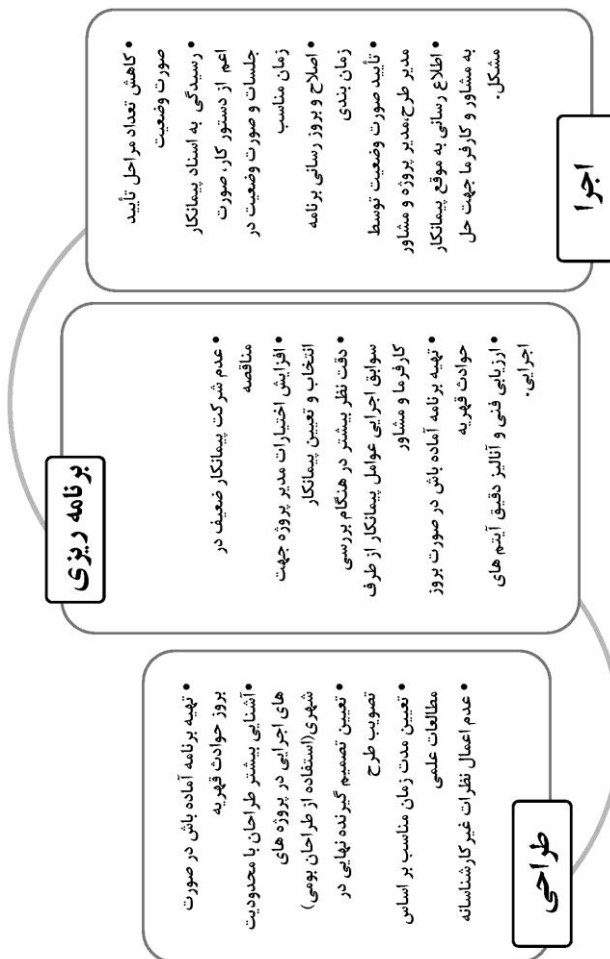 • تهیه برنامه آماده باش در صورت
بروز حوادث قهریه
• آشنایی بیشتر طراحان با محدودیت
های اجرایی در پروژه های
شهری(استفاده از طراحان بومی)
• تعیین تصمیم گیرنده نهایی در
تصویب طرح
• تعیین مدت زمان مناسب بر اساس
مطالعات علمی
• عدم اعمال نظرات غیر کارشناسانه
طراحی
برنامه ریزی
• عدم شرکت پیمانکار ضعیف در
مناقصه
• افزایش اختیارات مدیر پروژه جهت
انتخاب و تعیین پیمانکار
• دقت نظر بیشتر در هنگام بررسی
سوابق اجرایی عوامل پیمانکار از طرف
کارفرما و مشاور
• تهیه برنامه آماده باش در صورت بروز
حوادث قهریه
• ارزیابی فنی و آنالیز دقیق آیتم های
اجرایی.
• کاهش تعداد مراحل تأیید
صورت وضعیت
• رسیدگی به اسناد پیمانکار
اعم از دستور کار، صورت
جلسات و صورت وضعیت در
زمان مناسب
• اصلاح و بروز رسانی برنامه
زمان بندی
• تأیید صورت وضعیت توسط
مدیر طرح،مدیر پروژه و مشاور
• اطلاع رسانی به موقع پیمانکار
به مشاور و کارفرما جهت حل
مشکل.
اجرا